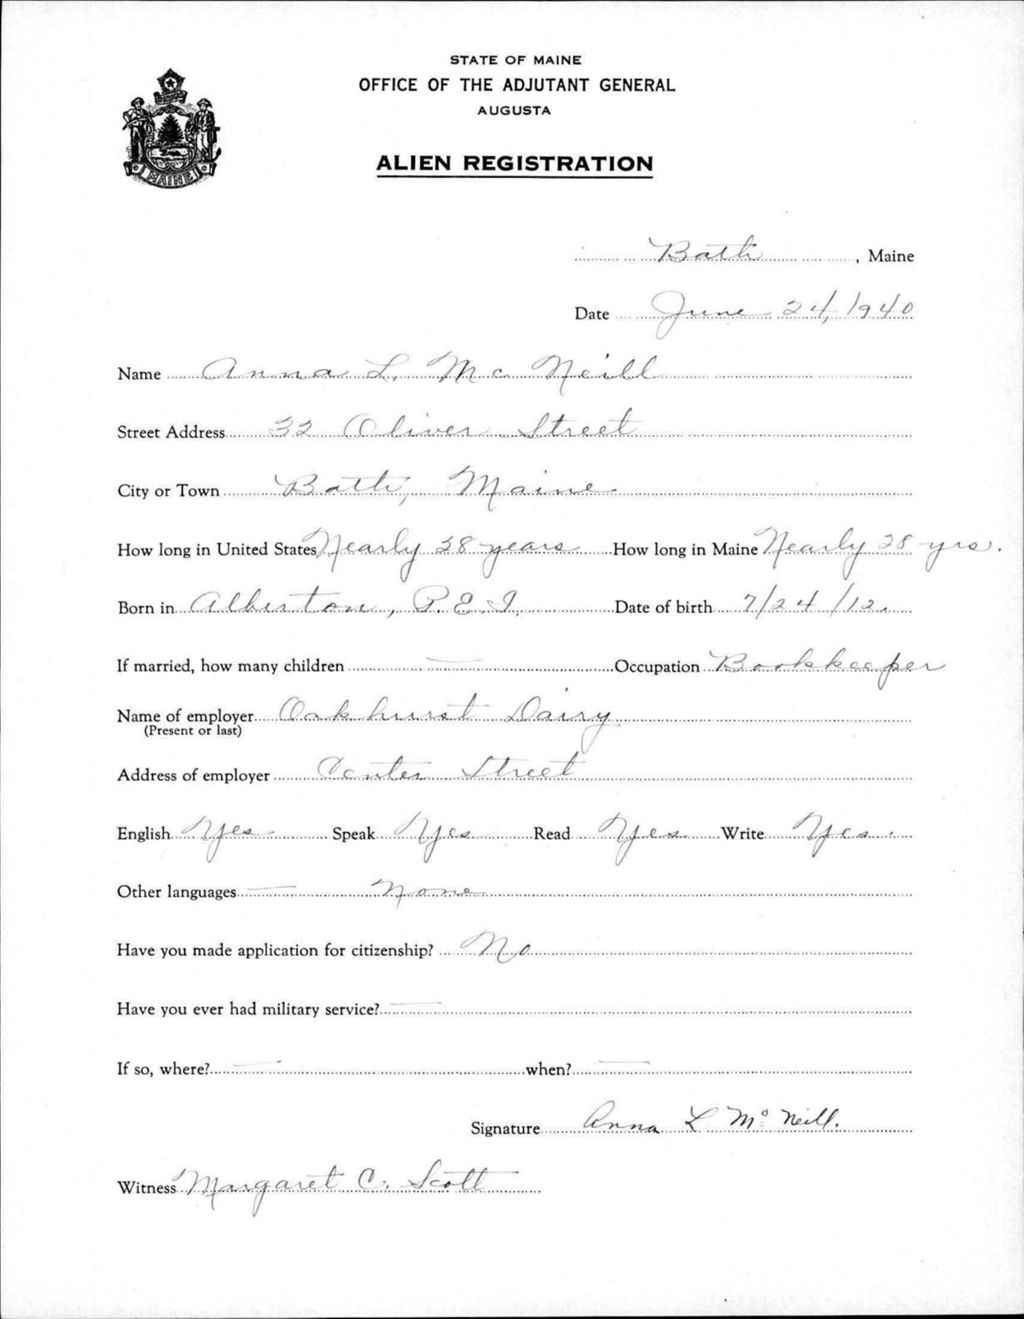 STATE OF MAINE
OFFICE OF THE ADJUTANT GENERAL
AUGUSTA
ALIEN REGISTRATION
MAINE
Bath, Maine
Date June 24, 1940
Name Anna L. Mc Neill
Street Address 32 Oliver Street
City or Town Bath, Maine
How long in United States Nearly 28 years How long in Maine Nearly 28 yrs.
Born in Alberton, P.E.I. Date of birth 7/24/12.
If married, how many children — Occupation Bookkeeper
Name of employer Oakhurst Dairy
(Present or last)
Address of employer Center Street
English Yes Speak Yes Read Yes Write Yes.
Other languages — None
Have you made application for citizenship? No
Have you ever had military service? —
If so, where? — when? —
Signature Anna L Mc Neill.
Witness Margaret C. Scott